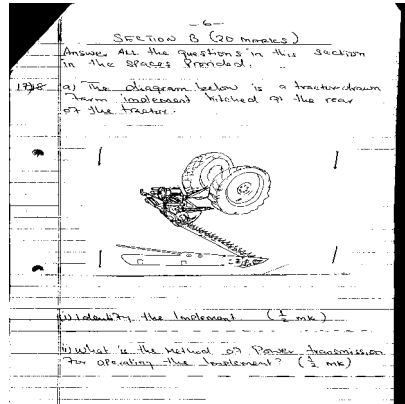 -6-
SECTION B (20 marks)
Answer ALL the questions in this section
in the spaces provided.
a) The diagram below is a tractor drawn
farm implement hitched at the rear
of the tractor.
i) Identify the Implement (½ mk)
ii) What is the Method of Power transmission
for operating the Implement? (½ mk)